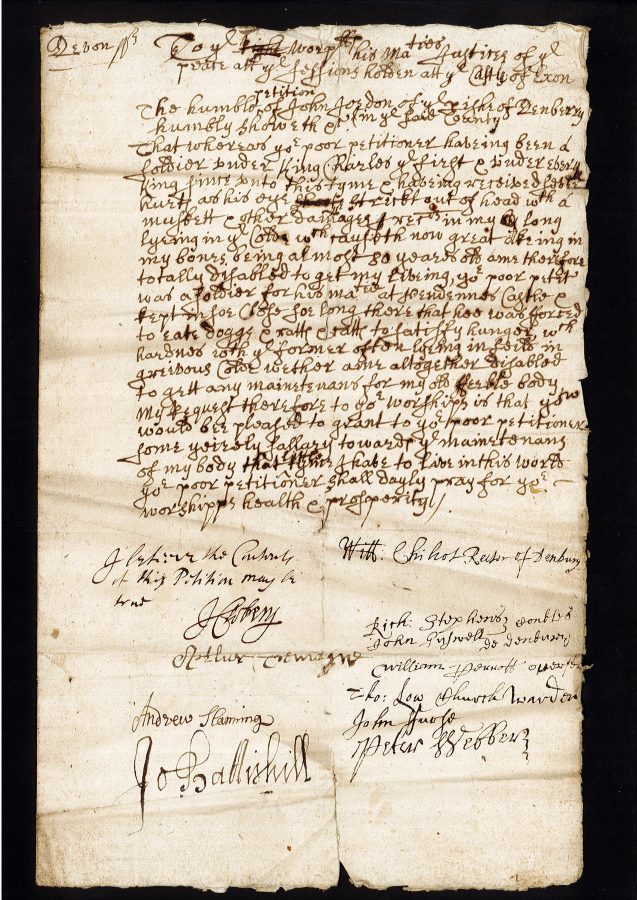 Devon ss
To ye worpll his Maties Justices of ye
peace att ye sessions holden att ye Castle of Exon
petition
The humble of John Jordon of ye pishe of Denberry
humbly showeth &c in ye said County
That whereas yor poor petitioner haveing been a
soldier under King Charles ye first & under every
King since unto this tyme & haveing received
hurts as his eye strickt out of head wth a
muskett & other damages in my long
lyeing in ye Colde wch causeth now great akeing in
my bones being almost 80 yeares old ame therefore
totally disabled to get my liveing, yor poor petitr
was a soldier for his matie at Pendennes Castle &
kept in soe close soe long there that hee was forced
to eate doggs & ratts & catts to satisfy hunger wch
hardnes with ye former often lyeing in feilds in
greivous Colde wether ame altogether disabled
to gett any maintenans for my old feeble body
My Request therefore to yor worshipps is that you
would bee pleased to grant to yor poor petitioner
some yeirely sallary towards ye maintenans
of my body that tyme I have to live in this world
yor poor petitioner shall dayly pray for yor
worshipps health & prosperity
I beleive the Contents
of this Petition may be
true
Will: Chilcot Rector of Denbury
Rich: Stephens
John de Denbury
William
Arthur Tremayne
Tho: Low Church Warden
Andrew Slaning
John
Peter Webber
Jo Battishill